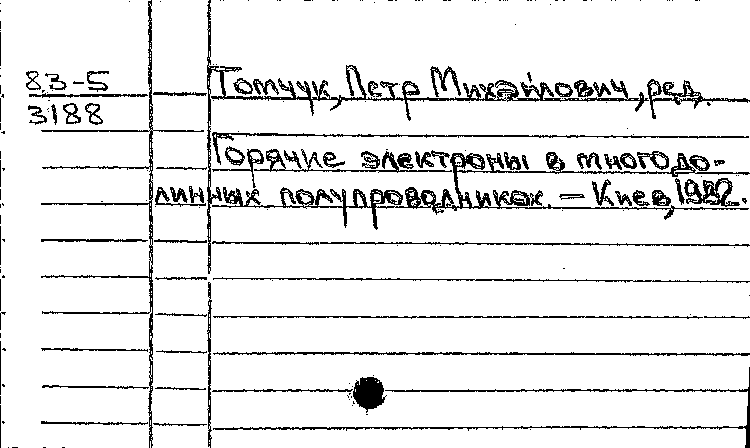 83-5 Томчук, Петр Михайлович, ред.
3188
Горячие электроны в многодо-
линных полупроводниках. – Киев, 1982.